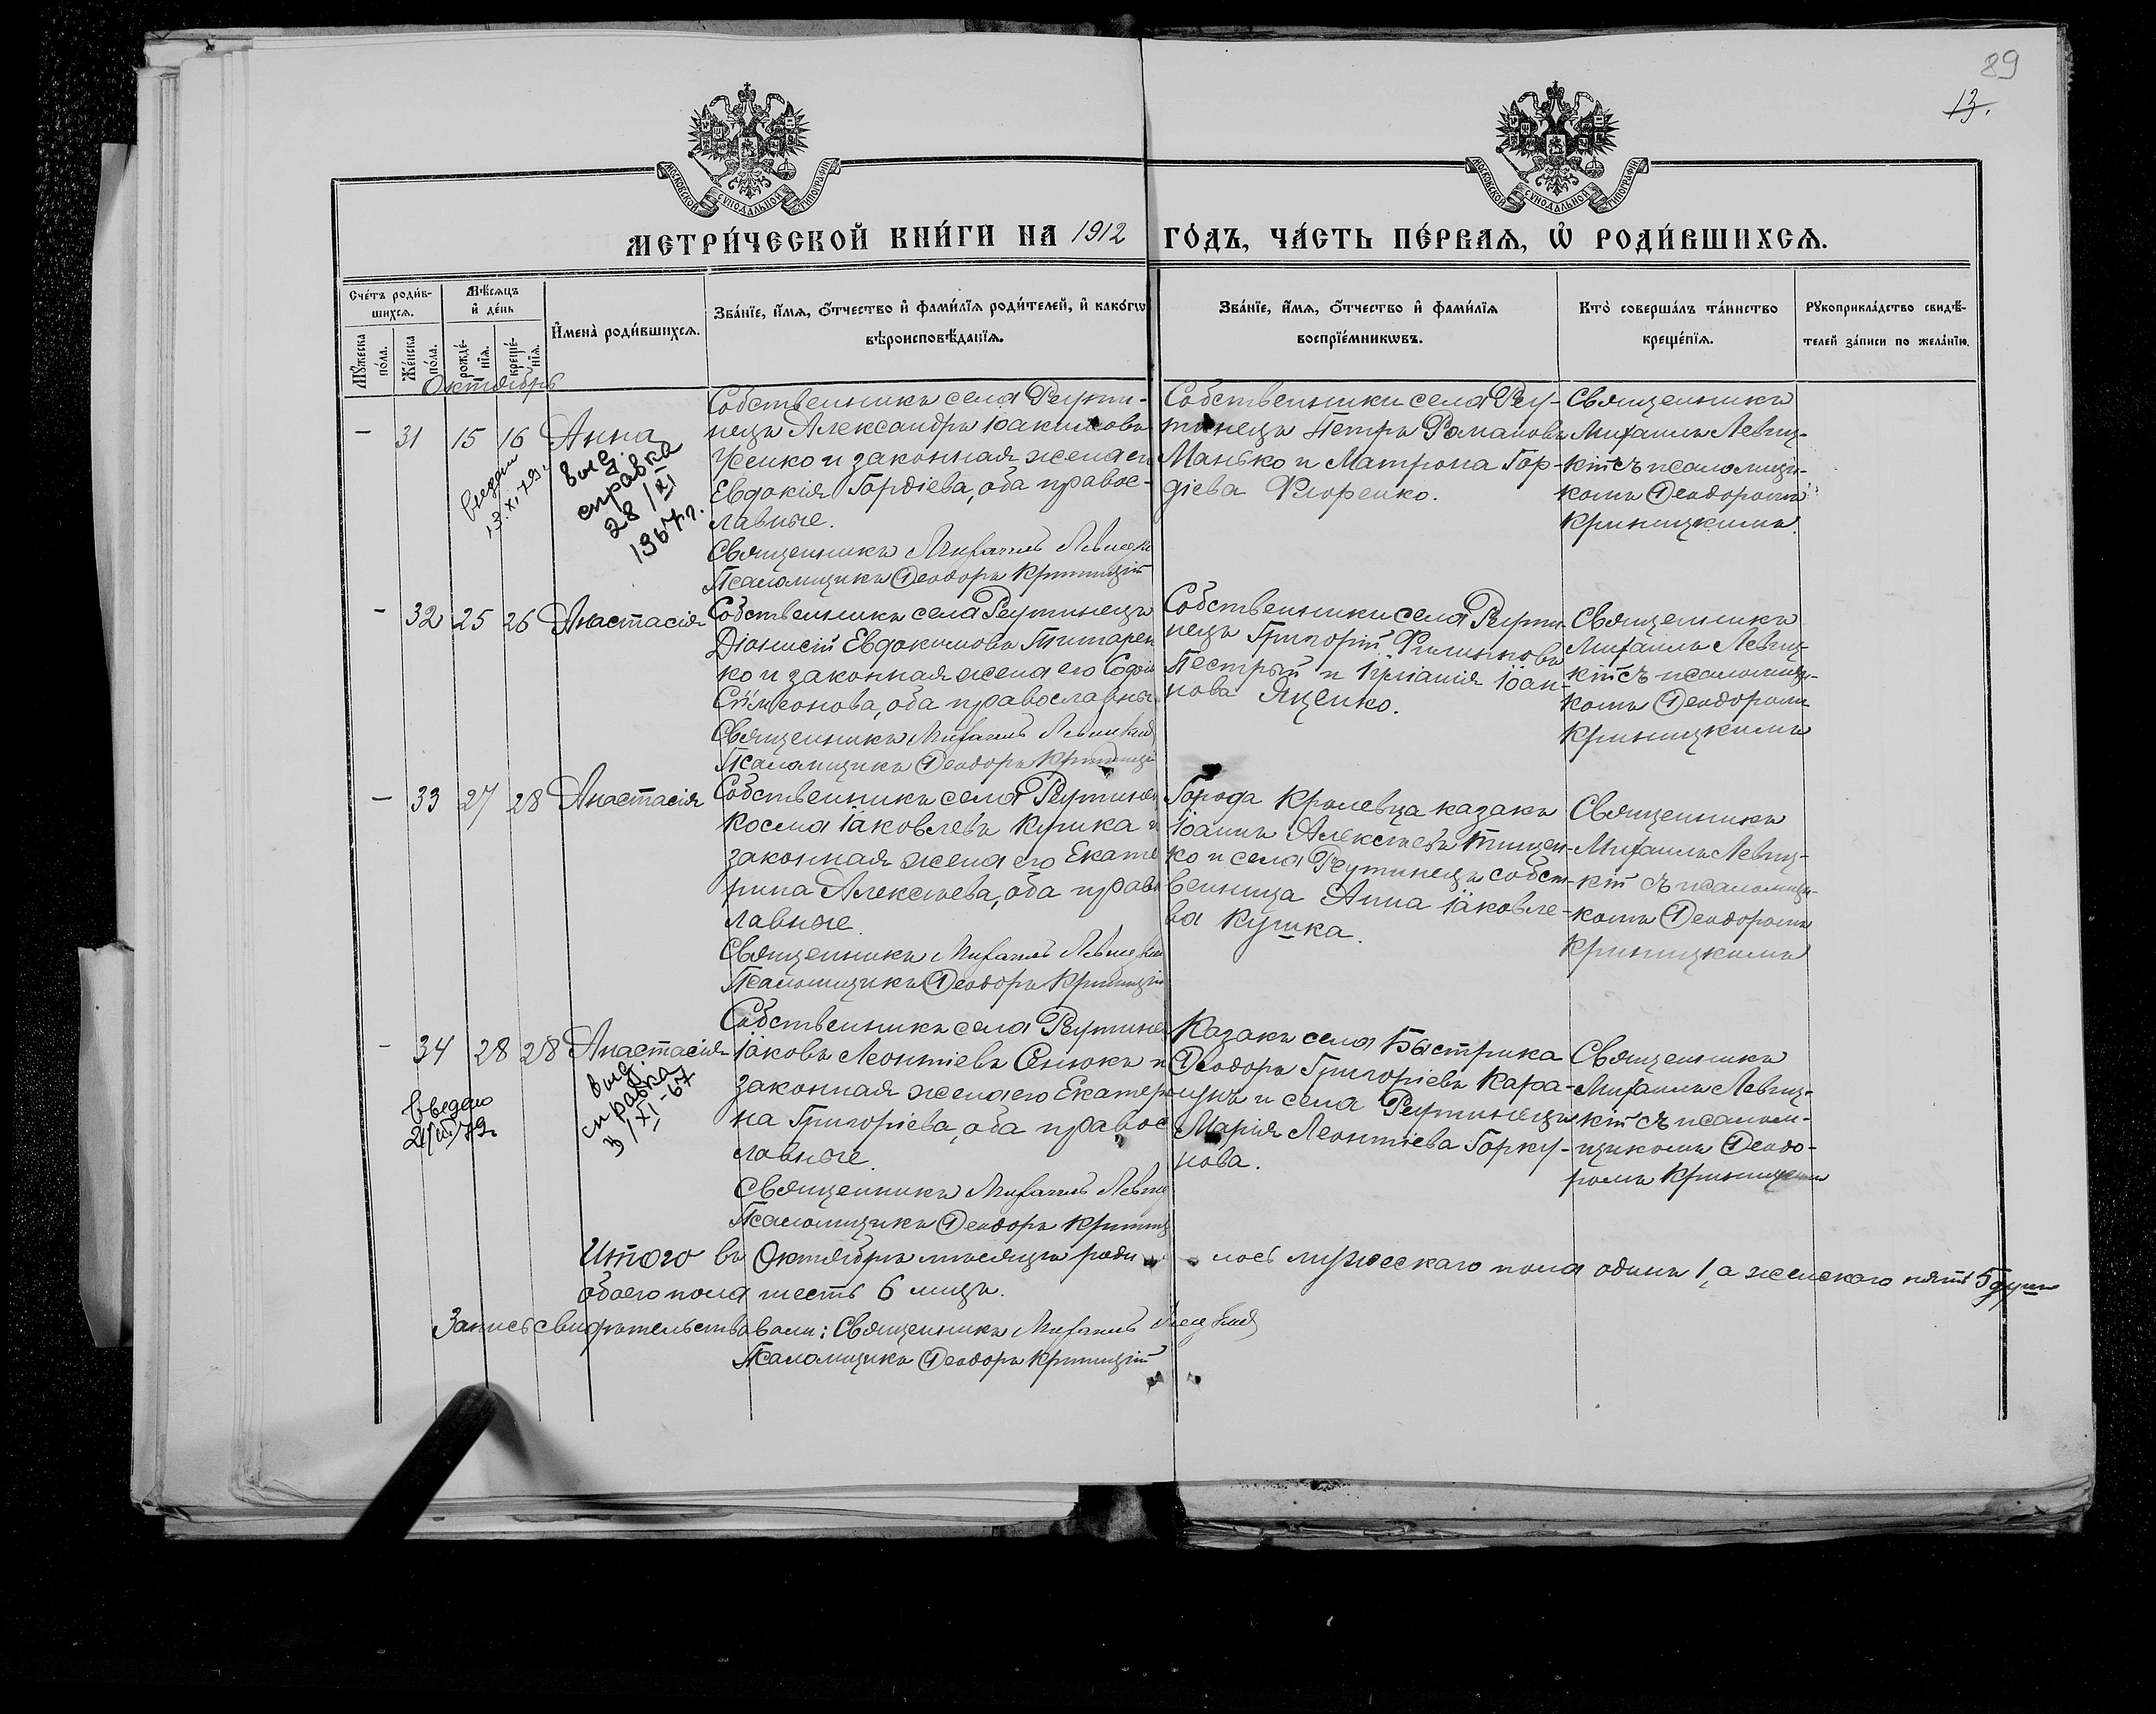 89
13.
МОСКОВСКОЙ СѴНОДАЛЬНОЙ ТИПОГРАФІИ
МОСКОВСКОЙ СѴНОДАЛЬНОЙ ТИПОГРАФІИ
МЕТРИ́ЧЕСКОЙ КНИ́ГИ НА 1912 ГО́ДЪ, ЧА́СТЬ ПЕ́РВАЯ, Ѡ РОДИ́ВШИХСЯ.
Сче́тъ роди́в-
шихся.
Мꙋ́жеска по́ла.
Же́нска по́ла.
Мѣ́сяцъ
и де́нь
рожде́-
нїя.
креще́-
нїя.
И҆мена̀ роди́вшихся.
Зва́нїе, и҆́мя, о҆́тчество и҆ фами́лїя роди́телей, и҆ како́гѡ
вѣроисповѣ́данїя.
Зва́нїе, и҆́мя, о҆́тчество и҆ фами́лїя
воспрїе́мникѡвъ.
Кто̀ соверша́лъ та́инство
креще́нїя.
Рꙋкоприкла́дство свидѣ́-
телей за́писи по жела́нїю.
Октябрь
— 31 15 16 Анна
выд.
справка
28/XI
1967 г.
Собственникъ села Реути-
нецъ Александръ Іоакимовъ
Усенко и законная жена его
Евдокія Гордіева, оба правос-
лавные.
Священникъ Михаилъ Левицкій
Псаломщикъ Ѳеодоръ Криницкій
Собственники села Реу-
тинецъ Петръ Романовъ
Манько и Матрона Гор-
діева Флоренко.
Священникъ
Михаилъ Левиц-
кій съ псаломщи-
комъ Ѳеодоромъ
Криницкимъ.
- 32 25 26 Анастасія
Собственникъ села Реутинецъ
Діонисій Евдокимовъ Титарен
ко и законная жена его Софія
Сѵмеонова, оба православные.
Священникъ Михаилъ Левицкій
Псаломщикъ Ѳеодоръ Криницкій
Собственники села Реути-
нецъ Григорій Филипповъ
Пестрый и Іуліанія Іоан-
нова Яценко.
Священникъ
Михаилъ Левиц-
кій съ псаломщи-
комъ Ѳеодоромъ
Криницкимъ
— 33 27 28 Анастасія
Собственникъ села Реутинец
Косма Іаковлевъ Кушка и
законная жена его Екате
рина Алексіева, оба право
лавные.
Священникъ Михаилъ Левицкій
Псаломщикъ Ѳеодоръ Криницкій
Города Кролевца казакъ
Іоаннъ Алексіевъ Тищен-
ко и села Реутинецъ собст-
венница Анна Іаковле-
ва Кушка.
Священникъ
Михаилъ Левиц-
кій съ псаломщи-
комъ Ѳеодоромъ
Криницкимъ
- 34 28 28 Анастасія
введено
выд
справка
3/XI-67
Собственникъ села Реутине
Іаковъ Леонтіевъ Сенюкъ и
законная жена его Екатери
на Григоріева, оба правос
лавные.
Священникъ Михаилъ Левиц
Псаломщикъ Ѳеодоръ Криниц
Казакъ села Быстрика
Ѳеодоръ Григоріевъ Кара-
цуп и села Реутинецъ
Марія Леонтіева Горку-
нова.
Священникъ
Михаилъ Левиц-
кій съ псалом-
щикомъ Ѳеодо-
ромъ Криницкимъ
Итого въ Октябрѣ мѣсяцѣ роди лось мужескаго пола одинъ 1, а женскаго пять 5 душъ
обоего пола шесть 6 лицъ.
Запись свидѣтельствовали: Священникъ Михаилъ Левицкій
Псаломщикъ Ѳеодоръ Криницкій